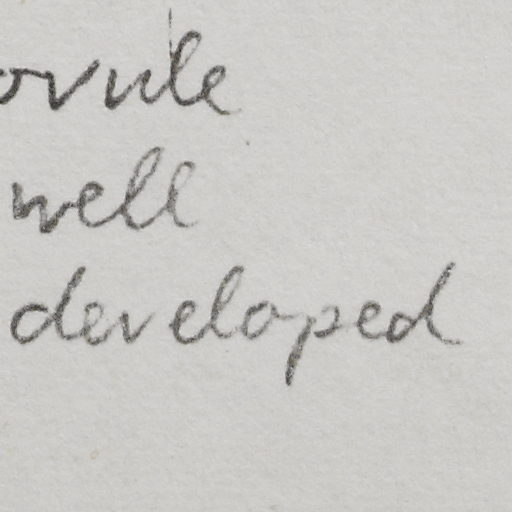 ovule
well
developed